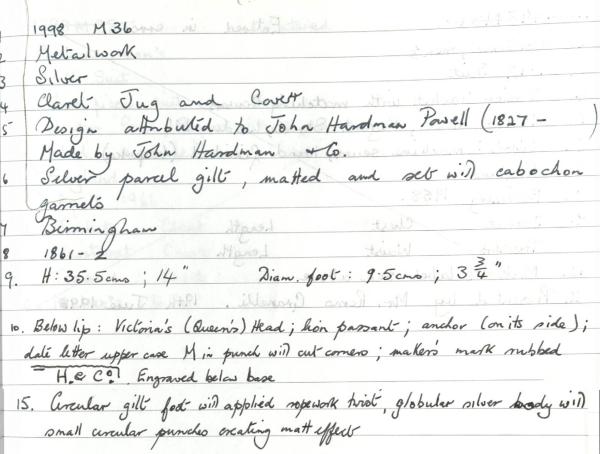 1 1998 M36
2 Metalwork
3 Silver
4 Claret Jug and Cover
5 Design attributed to John Hardman Powell (1827 - )
Made by John Hardman & Co.
6 Silver parcel gilt, matted and set with cabochon
garnets
7 Birmingham
8 1861-2
9. H: 35.5cms ; 14" Diam. foot : 9.5cms ; 3 3/4"
10. Below lip : Victoria's (Queen's) Head ; lion passant ; anchor (on its side) ;
date letter upper case M in punch with cut corners ; maker's mark rubbed
H. & Co. Engraved below base
15. Circular gilt foot with applied ropework twist, globular silver body with
small circular punches creating matt effect